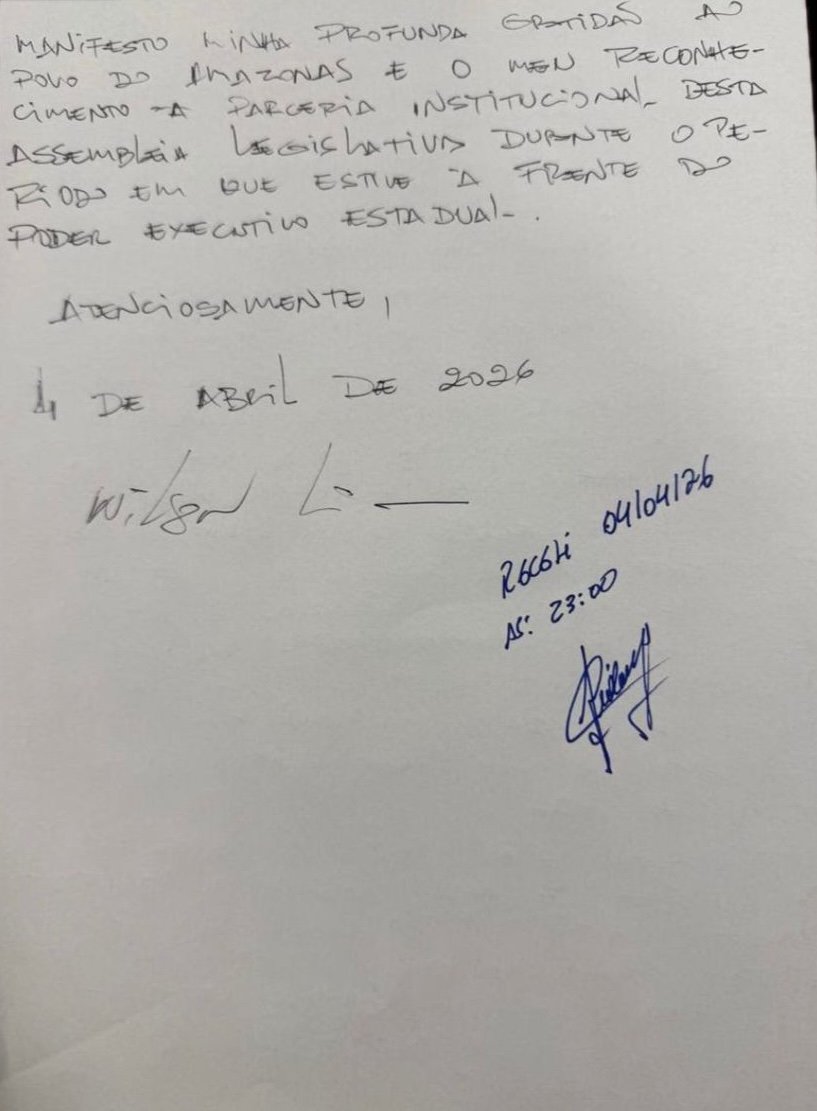 MANIFESTO MINHA PROFUNDA GRATIDÃO AO
POVO DO AMAZONAS E O MEU RECONHE-
CIMENTO A PARCERIA INSTITUCIONAL DESTA
ASSEMBLEIA LEGISLATIVA DURANTE O PE-
RÍODO EM QUE ESTIVE À FRENTE DO
PODER EXECUTIVO ESTADUAL.
ATENCIOSAMENTE,
4 DE ABRIL DE 2026
Wilson Lima
RECEBI 04/04/26
AS: 23:00